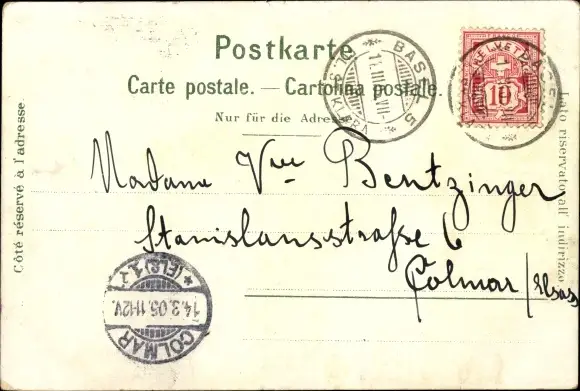 Postkarte
Carte postale. — Cartolina postale.
Nur für die Adresse
Côté réservé à l'adresse.
Lato riservato all' indirizzo.
BASEL 5
HELVETIA
10
Madame Vve Bentzinger
Stanislausstrasse 6
Colmar / Elsass
COLMAR
14.3.05.11-12V.
* (ELS) *